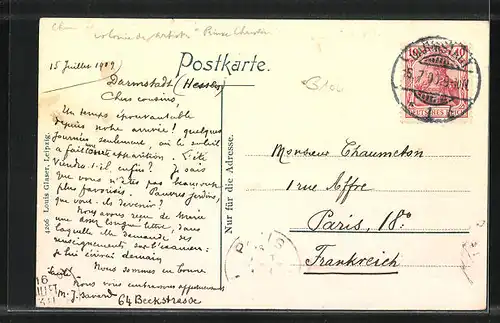 Postkarte.
15 Juillet 1909
Darmstadt (Hessen)
Chers cousins,
Un temps épouvantable
depuis notre arrivée ! quelques
journées seulement, où le soleil
a fait une apparition. L'été
viendra-t-il, enfin ? Je sais
que vous n'êtes pas beaucoup
plus favorisés. Pauvres jardins,
que vont-ils devenir ?
Nous avons reçu de Marie
une assez longue lettre, dans
laquelle elle demande des
renseignements sur l'examen :
je lui écrirai demain
Nous sommes en bonne
santé
Nous vous embrassons affectueusement
M. J. Savard 64 Beckstrasse
4206 Louis Glaser, Leipzig.
Nur für die Adresse.
Monsieur Chaumeton
1 rue Affre
Paris, 18e
Frankreich